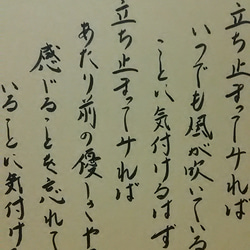 立ち止まってみれば
いつでも風が吹いている
ことに気付けるはず
立ち止まってみれば
あたり前の優しさや
感じることを忘れて
いることに気付け